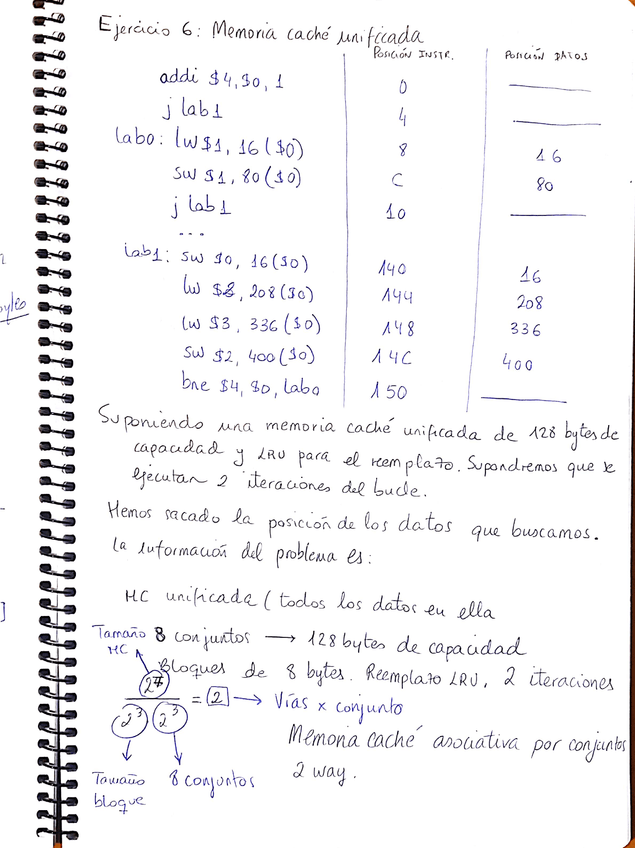 Ejercicio 6: Memoria caché unificada
POSICIÓN INSTR. POSICIÓN DATOS
addi $4,$0,1 0
j lab1 4
lab0: lw $1, 16($0) 8 16
sw $1, 80($0) C 80
j lab1 10
...
lab1: sw $0, 16($0) 140 16
lw $2, 208($0) 144 208
lw $3, 336($0) 148 336
sw $2, 400($0) 14C 400
bne $4, $0, lab0 150
Suponiendo una memoria caché unificada de 128 bytes de
capacidad y LRU para el reemplazo. Supondremos que se
ejecutan 2 iteraciones del bucle.
Hemos sacado la posición de los datos que buscamos.
La información del problema es:
MC unificada (todos los datos en ella
Tamaño MC 8 conjuntos → 128 bytes de capacidad
Bloques de 8 bytes. Reemplazo LRU, 2 iteraciones
2^7 / 2^3 2^3 = 2 → Vías x conjunto
Memoria caché asociativa por conjuntos
2 way.
Tamaño bloque 8 conjuntos
ytes
]